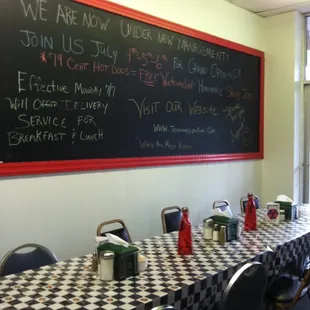 We are Now Under New Management!
Join Us July 4th-5th-6th For Grand Opening!
*79 Cent Hot Dogs = Free Watermelon
Effective Monday 7/7
Will Offer Delivery
Service for
Breakfast & Lunch
Visit Our Website
www.